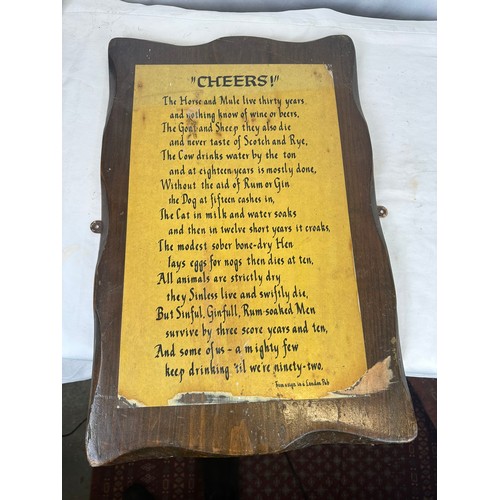 "CHEERS!"
The Horse and Mule live thirty years,
and nothing know of wine or beers,
The Goat and Sheep they also die
and never taste of Scotch and Rye,
The Cow drinks water by the ton
and at eighteen years is mostly done,
Without the aid of Rum or Gin
the Dog at fifteen cashes in,
The Cat in milk and water soaks
and then in twelve short years it croaks,
The modest sober bone-dry Hen
lays eggs for nogs then dies at ten,
All animals are strictly dry
they Sinless live and swiftly die,
But Sinful, Ginfull, Rum-soaked Men
survive by three score years and ten,
And some of us - a mighty few
keep drinking 'til we're ninety-two.
From a sign in a London Pub